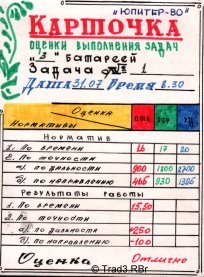 "ЮПИТЕР-80"
КАРТОЧКА
ОЦЕНКИ ВЫПОЛНЕНИЯ ЗАДАЧ
"3" батареей
Задача 1
Дата 31.07 Время 8.30
Оценка
Нормативы
ОТЛ ХОР УД
Норматив
1. По времени 16 17 20
2. По точности
а) по дальности 900 1800 2700
б) по направлению 465 930 1395
Результаты работы
1. По времени 15.50
2. По точности
а) по дальности +250
б) по направлению -100
Оценка Отлично
© Trad3.RBr